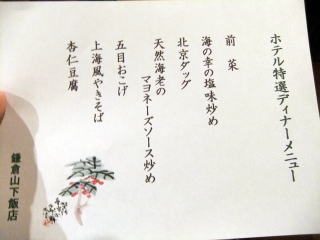 ホテル特選ディナーメニュー
前菜
海の幸の塩味炒め
北京ダッグ
天然海老の
マヨネーズソース炒め
五目おこげ
上海風やきそば
杏仁豆腐
鎌倉山下飯店